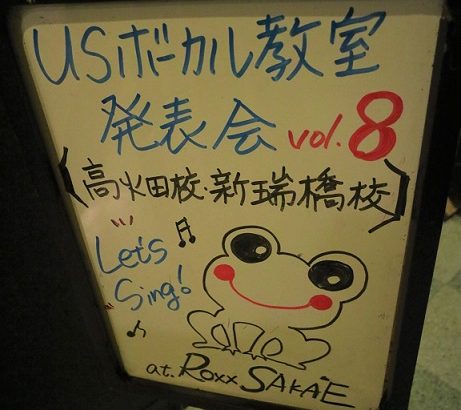 USボーカル教室
発表会 vol.8
(高畑校・新瑞橋校)
Let's
Sing!
at. ROXX SAKAE